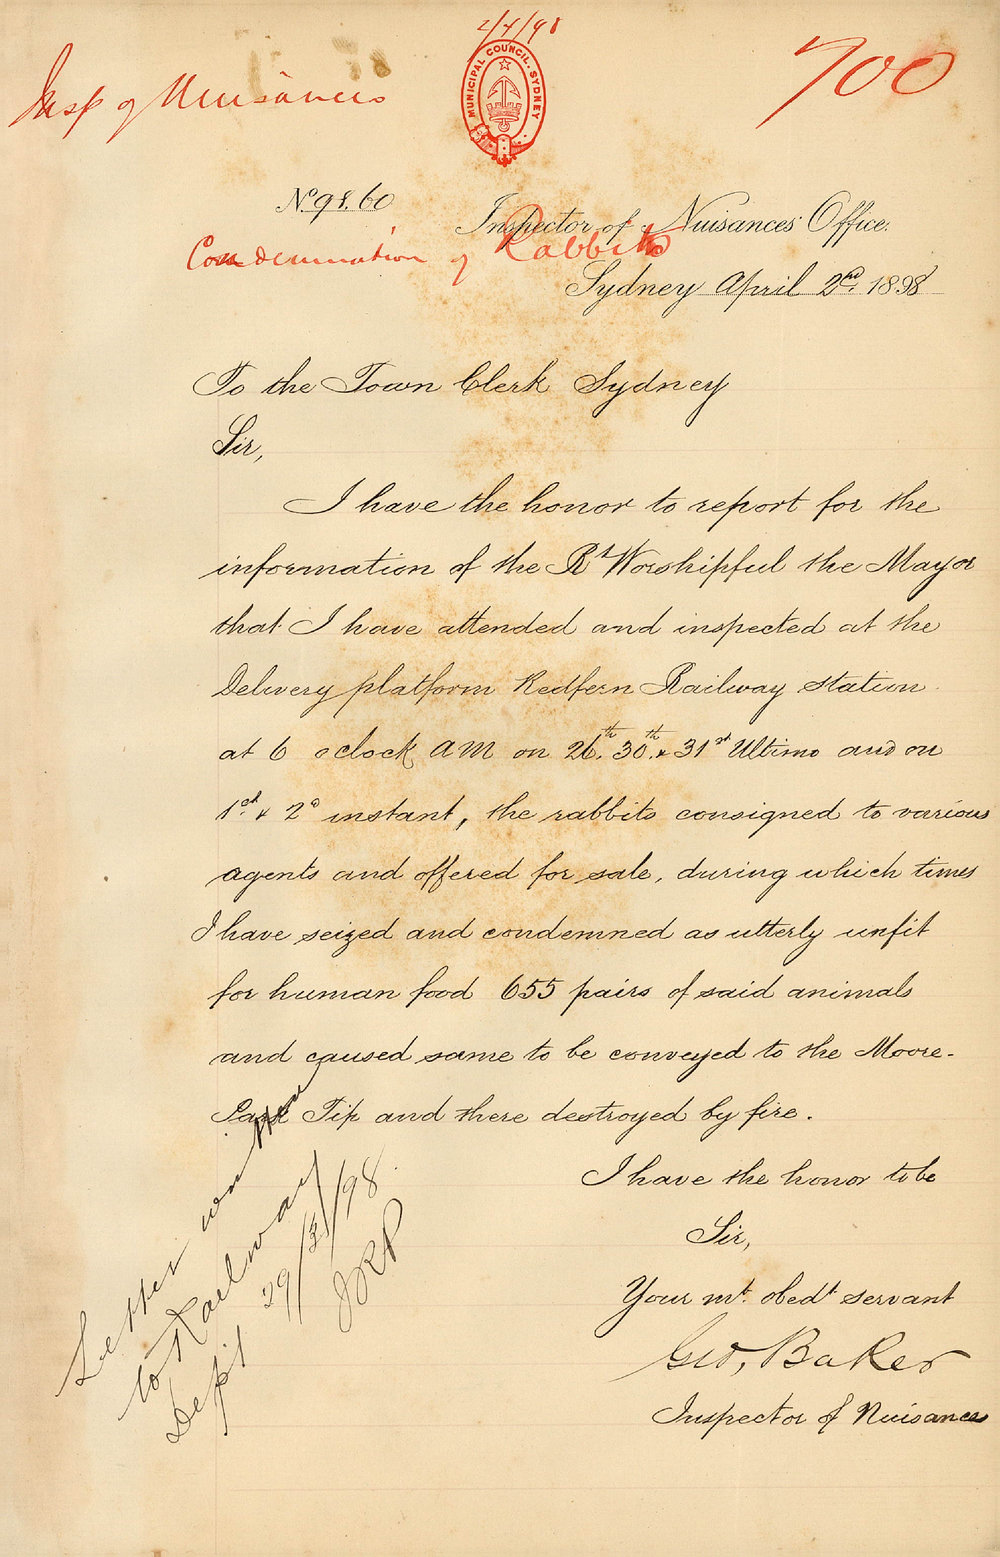 2/4/98
Insp of Nuisances
700
MUNICIPAL COUNCIL. SYDNEY
No 98.60
Inspector of Nuisances Office.
Condemnation of Rabbits
Sydney April 2nd 1898
To the Town Clerk Sydney
Sir,
I have the honor to report for the
information of the Rt Worshipful the Mayor
that I have attended and inspected at the
Delivery platform Redfern Railway Station
at 6 oclock AM on 26th. 30th. & 31st Ultimo and on
1st. & 2d instant, the rabbits consigned to various
agents and offered for sale, during which times
I have seized and condemned as utterly unfit
for human food 655 pairs of said animals
and caused same to be conveyed to the Moore-
Park Tip and there destroyed by fire.
I have the honor to be
Sir,
Your mt. obedt servant
Geo, Baker
Inspector of Nuisances
Letter written
to Railway
Dept 29/3/98
JRP